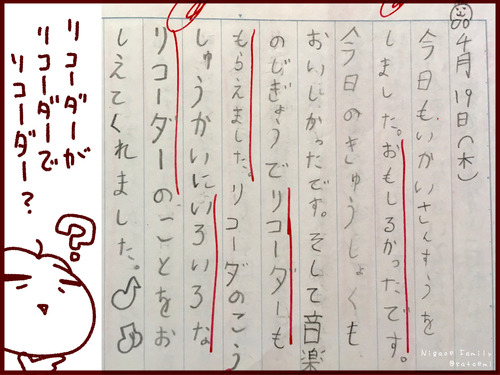 4月19日(木)
今日もいかいさんすうを
しました。おもしるかったです。
今日のきゅうしょくも
おいしかったです。そして音楽
のじぎょうでリコーダーも
もらえました。リコーダのこう
しゅうかいにいろいろな
リコーダーのことをお
しえてくれました。
リコーダーが
リコーダーで
リコーダー?
?
Nigaoe Family